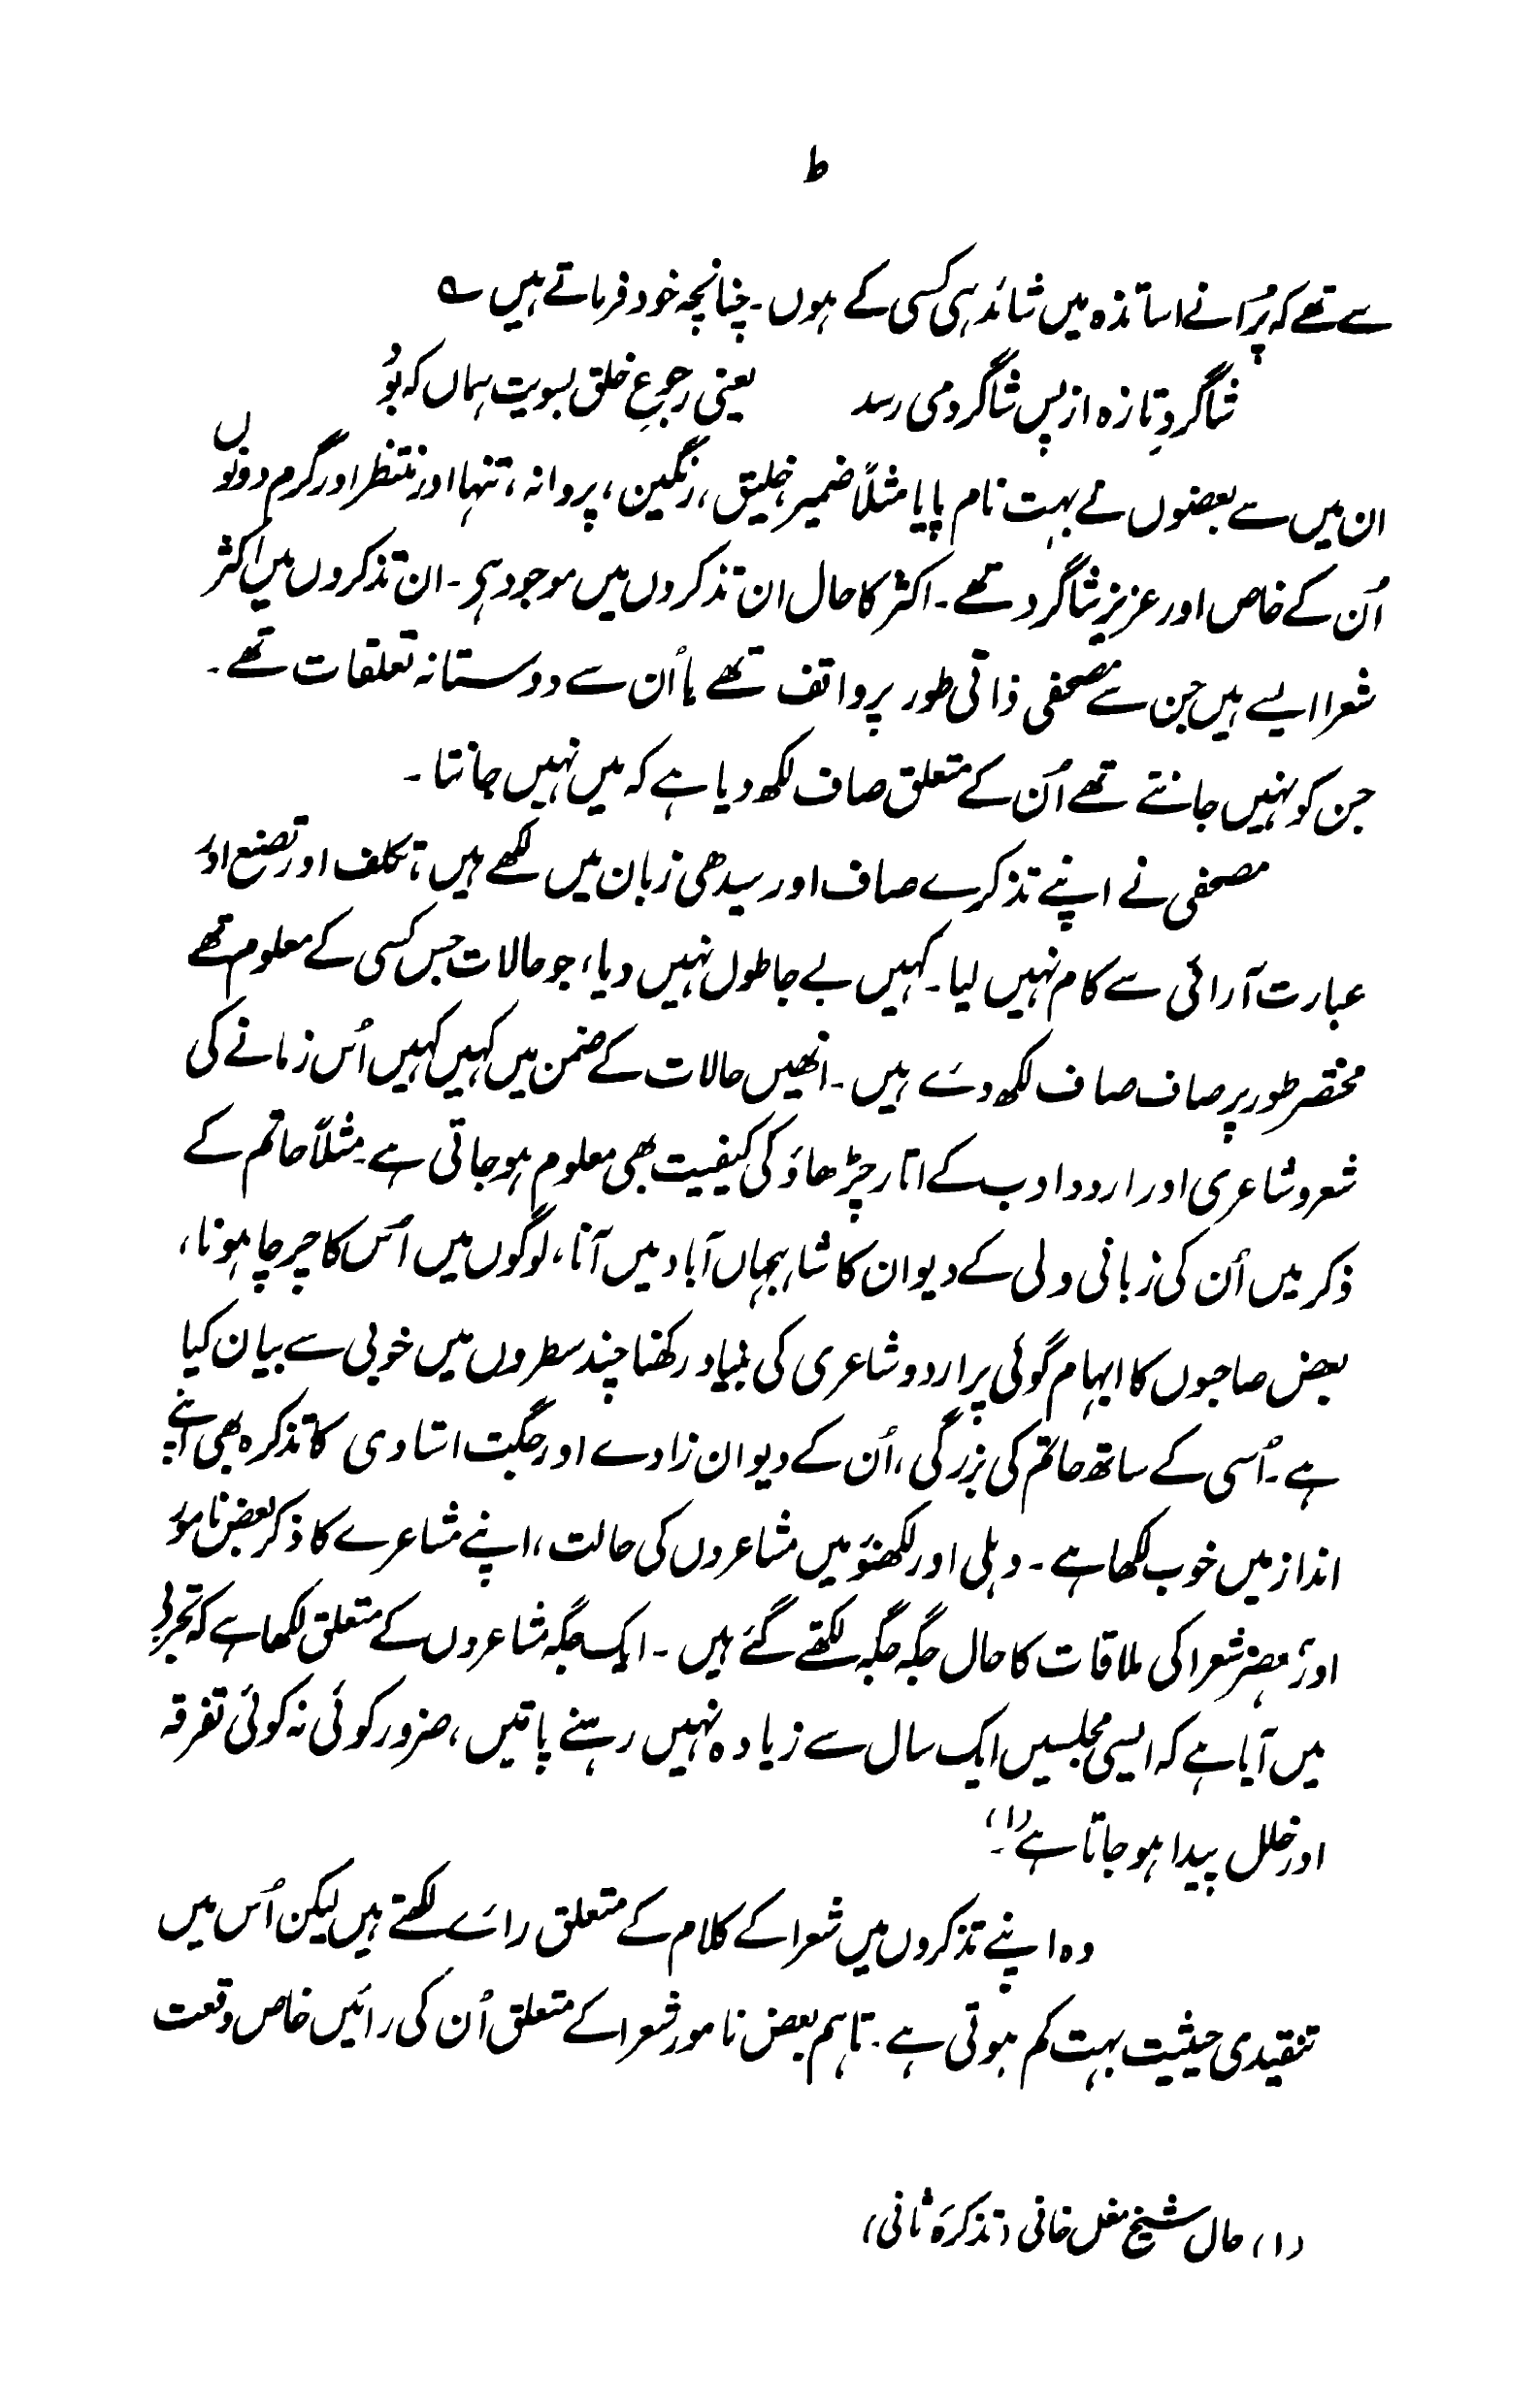 ط
سے تھے کہ پُرانے اساتذہ میں شائد ہی کسی کے ہوں۔ چنانچہ خود فرماتے ہیں ؎
شاگردِ تازہ از پسِ شاگرد می رسد یعنی رجوعِ خلق بسویت ہماں کہ بوُد
ان میں سے بعضوں نے بہت نام پایا مثلاً ضمیر، خلیق، رنگین، پروانہ، تنہا اور منتظر اور گرم دونوں
اُن کے خاص اور عزیز شاگرد تھے۔ اکثر کا حال ان تذکروں میں موجود ہے۔ ان تذکروں میں اکثر
شعرا ایسے ہیں جن سے مصحفی ذاتی طور پر واقف تھے یا اُن سے دوستانہ تعلقات تھے۔
جن کو نہیں جانتے تھے اُن کے متعلق صاف لکھ دیا ہے کہ میں نہیں جانتا۔
مصحفی نے اپنے تذکرے صاف اور سیدھی زبان میں لکھے ہیں، تکلف اور تصنع اور
عبارت آرائی سے کام نہیں لیا۔ کہیں بے جا طول نہیں دیا، جو حالات جس کسی کے معلوم تھے
مختصر طور پر صاف صاف لکھ دئے ہیں۔ انھیں حالات کے ضمن میں کہیں کہیں اُس زمانے کی
شعر و شاعری اور اردو ادب کے اتار چڑھاؤ کی کیفیت بھی معلوم ہو جاتی ہے۔ مثلاً حاتم کے
ذکر میں اُن کی زبانی ولی کے دیوان کا شاہجہاں آباد میں آنا، لوگوں میں اُس کا چرچا ہونا،
بعض صاحبوں کا ایہام گوئی پر اردو شاعری کی بنیاد رکھنا چند سطروں میں خوبی سے بیان کیا
ہے۔ اُسی کے ساتھ حاتم کی بزرگی، اُن کے دیوان زادے اور جگت استادی کا تذکرہ بھی اپنے
انداز میں خوب لکھا ہے۔ دہلی اور لکھنؤ میں مشاعروں کی حالت، اپنے مشاعرے کا ذکر بعض نامور
اور ہمعصر شعرا کی ملاقات کا حال جگہ جگہ لکھتے گئے ہیں۔ ایک جگہ مشاعروں کے متعلق لکھا ہے کہ تجربے
میں آیا ہے کہ ایسی مجلسیں ایک سال سے زیادہ نہیں رہنے پاتیں، ضرور کوئی نہ کوئی تفرقہ
اور خلل پیدا ہو جاتا ہے (۱)۔
وہ اپنے تذکروں میں شعرا کے کلام کے متعلق رائے لکھتے ہیں لیکن اُس میں
تنقیدی حیثیت بہت کم ہوتی ہے۔ تاہم بعض نامور شعرا کے متعلق اُن کی رائیں خاص وقعت
(۱) حال شیخ مغل خانی (تذکرۂ ثانی)